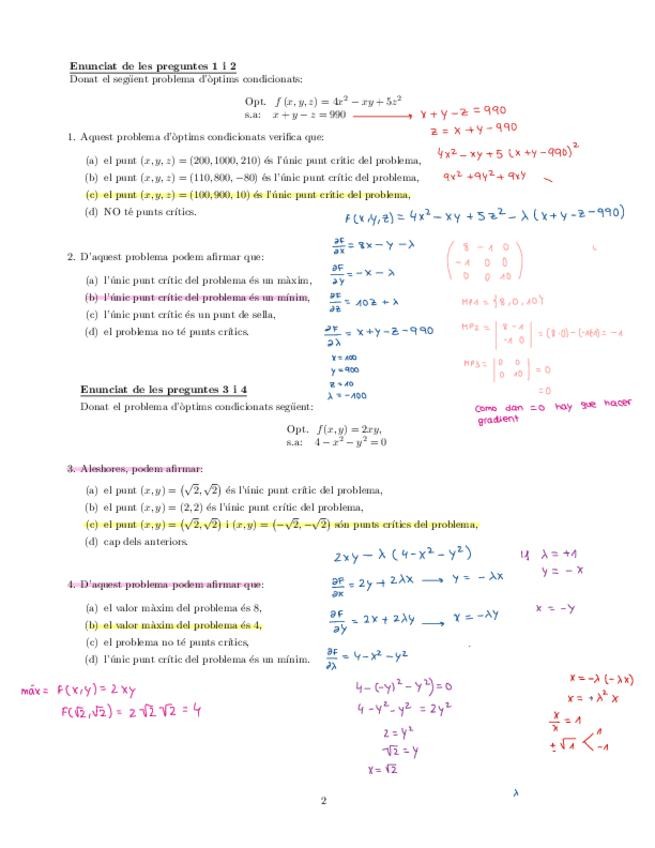 Enunciat de les preguntes 1 i 2
Donat el següent problema d'òptims condicionats:
Opt. f (x, y, z) = 4x² − xy + 5z²
s.a: x + y − z = 990
x + y − z = 990
z = x + y − 990
4x² − xy + 5 (x + y − 990)²
9x² + 9y² + 9xy
1. Aquest problema d'òptims condicionats verifica que:
(a) el punt (x, y, z) = (200, 1000, 210) és l'únic punt crític del problema,
(b) el punt (x, y, z) = (110, 800, −80) és l'únic punt crític del problema,
(c) el punt (x, y, z) = (100, 900, 10) és l'únic punt crític del problema,
(d) NO té punts crítics.
F(x,y,z) = 4x² − xy + 5z² − λ (x + y − z − 990)
2. D'aquest problema podem afirmar que:
(a) l'únic punt crític del problema és un màxim,
(b) l'únic punt crític del problema és un mínim,
(c) l'únic crític és un punt de sella,
(d) el problema no té punts crítics.
∂F/∂x = 8x − y − λ
∂F/∂y = −x − λ
∂F/∂z = 10z + λ
∂F/∂λ = x + y − z − 990
x = 100
y = 900
z = 10
λ = −100
8 −1 0
−1 0 0
0 0 10
MP1 = {8, 0, 10}
MP2 = | 8 −1 | = (8·0) − (−1·−1) = −1
−1 0
MP3 = | 0 0 | = 0
0 10
= 0
como dan = 0 hay que hacer
gradient
Enunciat de les preguntes 3 i 4
Donat el problema d'òptims condicionats següent:
Opt. f(x, y) = 2xy,
s.a: 4 − x² − y² = 0
3. Aleshores, podem afirmar:
(a) el punt (x, y) = (√2, √2) és l'únic punt crític del problema,
(b) el punt (x, y) = (2, 2) és l'únic punt crític del problema,
(c) el punt (x, y) = (√2, √2) i (x, y) = (−√2, −√2) són punts crítics del problema,
(d) cap dels anteriors.
2xy − λ (4 − x² − y²)
∂F/∂x = 2y + 2λx → y = −λx
∂F/∂y = 2x + 2λy → x = −λy
∂F/∂λ = 4 − x² − y²
λ = +1
y = −x
x = −y
4. D'aquest problema podem afirmar que:
(a) el valor màxim del problema és 8,
(b) el valor màxim del problema és 4,
(c) el problema no té punts crítics,
(d) l'únic punt crític del problema és un mínim.
máx = F(x,y) = 2xy
F(√2, √2) = 2 √2 √2 = 4
4 − (−y)² − y²) = 0
4 − y² − y² = 2y²
2 = y²
√2 = y
x = √2
x = −λ (−λx)
x = +λ² x
x/x = 1
± √1 < 1
−1
λ
2